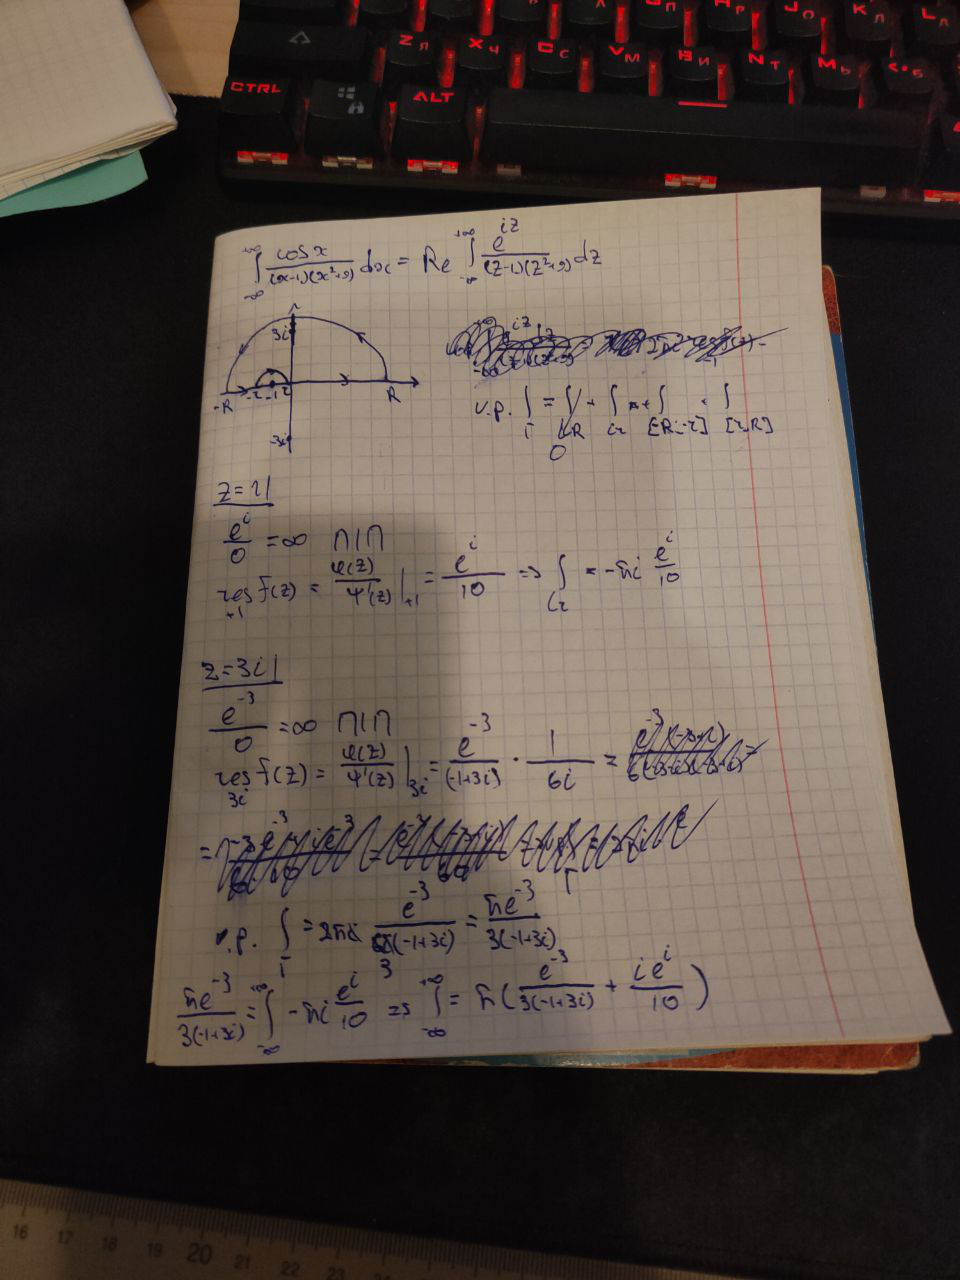 Zя Xч Cс Vм Bи Nт Mь <•б
CTRL ALT
∫_{-∞}^{+∞} cosx/((x-1)(x²+9)) dx = Re ∫_{-∞}^{+∞} e^{iz}/((z-1)(z²+9)) dz
3i
-R -r -1 r R
-3i
v.p. ∫_Γ = ∫_{CR} + ∫_{Cr} + ∫_{[-R;-r]} + ∫_{[r;R]}
0
z=1|
e^i/0 = ∞ П1П
res_{+1} f(z) = φ(z)/ψ'(z)|_{+1} = e^i/10 => ∫_{Cr} = -πi e^i/10
z=3i|
e^{-3}/0 = ∞ П1П
res_{3i} f(z) = φ(z)/ψ'(z)|_{3i} = e^{-3}/(-1+3i) · 1/6i =
v.p. ∫_Γ = 2πi e^{-3}/(3(-1+3i)) = πe^{-3}/(3(-1+3i))
πe^{-3}/(3(-1+3i)) = ∫_{-∞}^{+∞} -πi e^i/10 => ∫_{-∞}^{+∞} = π(e^{-3}/(3(-1+3i)) + ie^i/10)
16 17 18 19 20 21 22 23